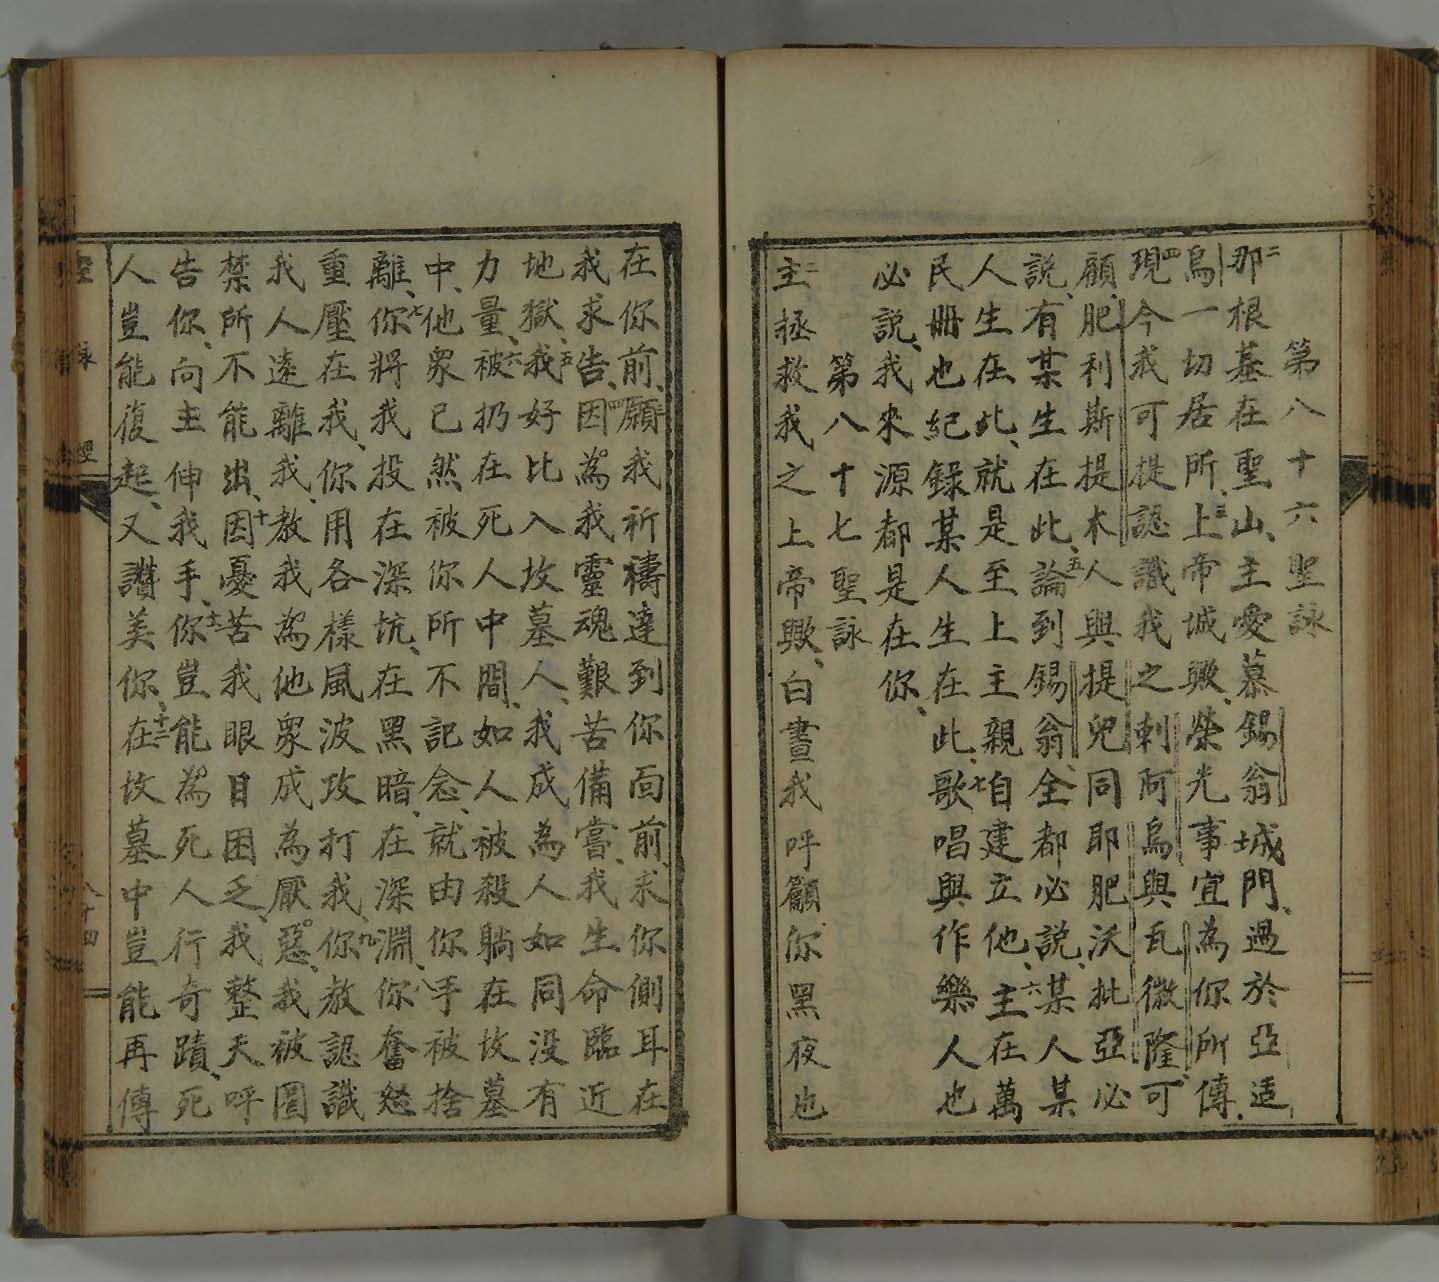 第八十六聖詠
二那根基在聖山、主愛慕錫翁城門、過於亞适
烏一切居所、三上帝城歟、榮光事宜為你所傳、
四現今我可提認識我之剌阿烏與瓦微隆、可
顧肥利斯提木人、與提兒同耶肥沃批亞、必
說、有某生在此、五論到錫翁、全都必說、某人某
人生在此、就是至上主親自建立他、六主在萬
民冊也紀錄某人生在此、七歌唱與作樂人也
必說、我來源都是在你、
第八十七聖詠
二主拯救我之上帝歟、白晝我呼籲你黑夜也
在你前、三願我祈禱達到你面前、求你側耳在
我求告、四因為我靈魂艱苦備嘗、我生命臨近
地獄、五我好比入坟墓人、我成為人如同没有
力量、六被扔在死人中間、如人被殺躺在坟墓
中、他眾已然被你所不記念、就由你手被捨
離、七你將我投在深坑、在黑暗、在深淵、八你奮怒
重壓在我、你用各樣風波攻打我、九你教認識
我人遠離我、教我為他眾成為厭惡、我被圍
禁所不能出、十因憂苦我眼目困乏、我整天呼
告你、向主伸我手、十一你豈能為死人行奇蹟、死
人豈能復起、又讚美你、十二在坟墓中豈能再傳
聖詠經
八十四